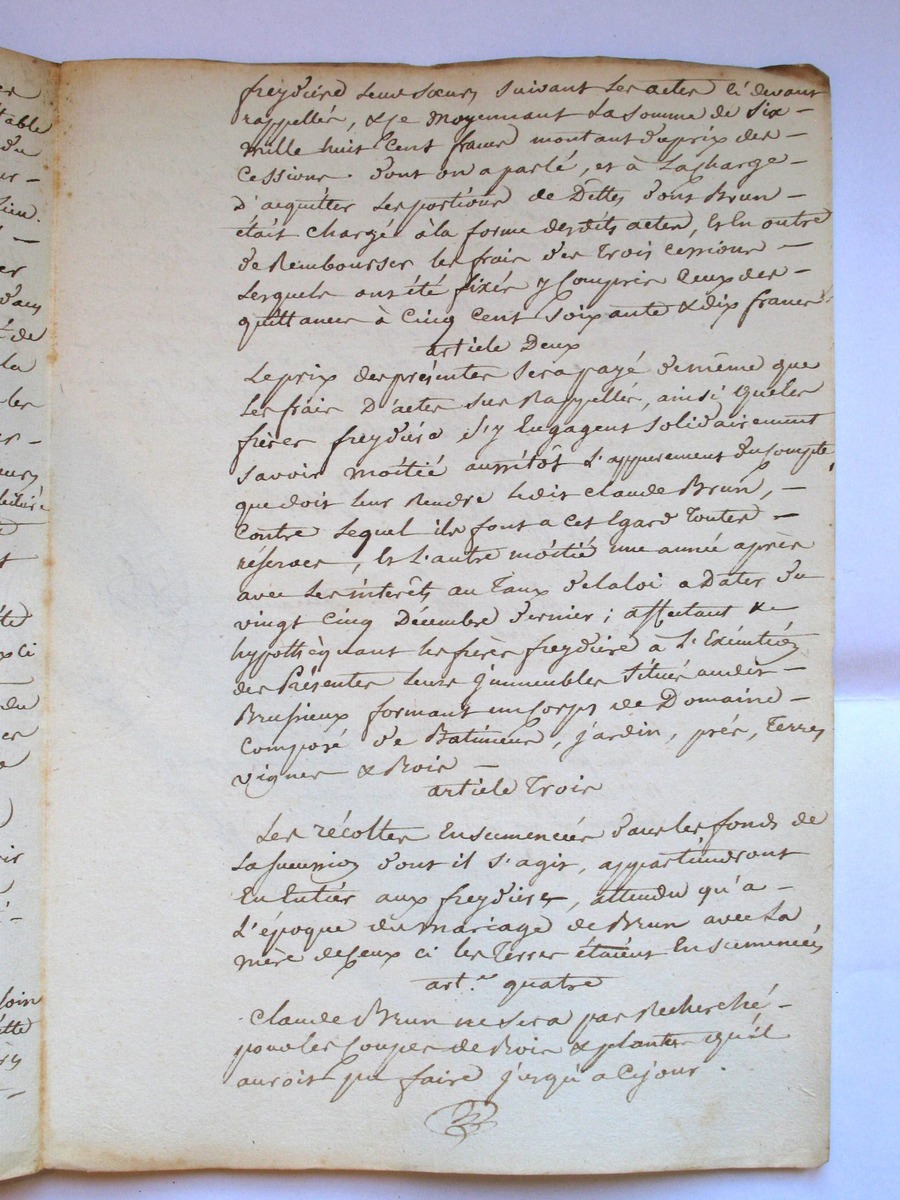 er
table
du
ur -
lieu.
er
de
la
les
er -
ité
ci
du
er
oir
loin
freydiere leurs sœurs suivant les actes ci devant
rappellés, & ce moyennant la somme de six -
mille huit cent francs montant du prix des -
cessions. dont on a parlé, et à la charge -
d'acquitter les portions de Dettes dont Brun -
était chargé à la forme desdits actes, Et En outre
de Rembourser les frais des Trois cessions -
lesquels ont été fixés y Compris Ceux des -
quittances à Cinq Cent Soixante & dix francs
article Deux
Le prix des présentes sera payé de même que
les frais d'actes sus Rappellés, ainsi que les
frères freydière s'y Engagent solidairement
savoir moitié aussitôt l'appurement du compte
que doit leur Rendre ledit Claude Brun, -
Contre lequel ils font a cet Egard Toutes -
réserves, Et l'autre moitié une année après
avec les intérêts au Taux de la loi a Dater du
vingt Cinq Décembre dernier; affectant &
hypothèquant les frères freydière à l'Exécution
des Présentes leurs immeubles situés audit -
Brussieux formant un Corps de Domaine -
Composé de Batiments, jardin, prés, Terres
vignes & Bois -
article Trois
Les récoltes Ensemencées dans les fonds de
la dont il s'agit, appartiendront
En Entier aux freydieres, attendu qu'a -
l'époque du mariage de Brun avec la
mère de Ceux ci les Terres étaient Ensemencées
art.e quatre
Claude Brun ne sera pas Recherché -
pour les Coupes de Bois & plantes qu'il
auroit pu faire jusqu'a Ce jour.